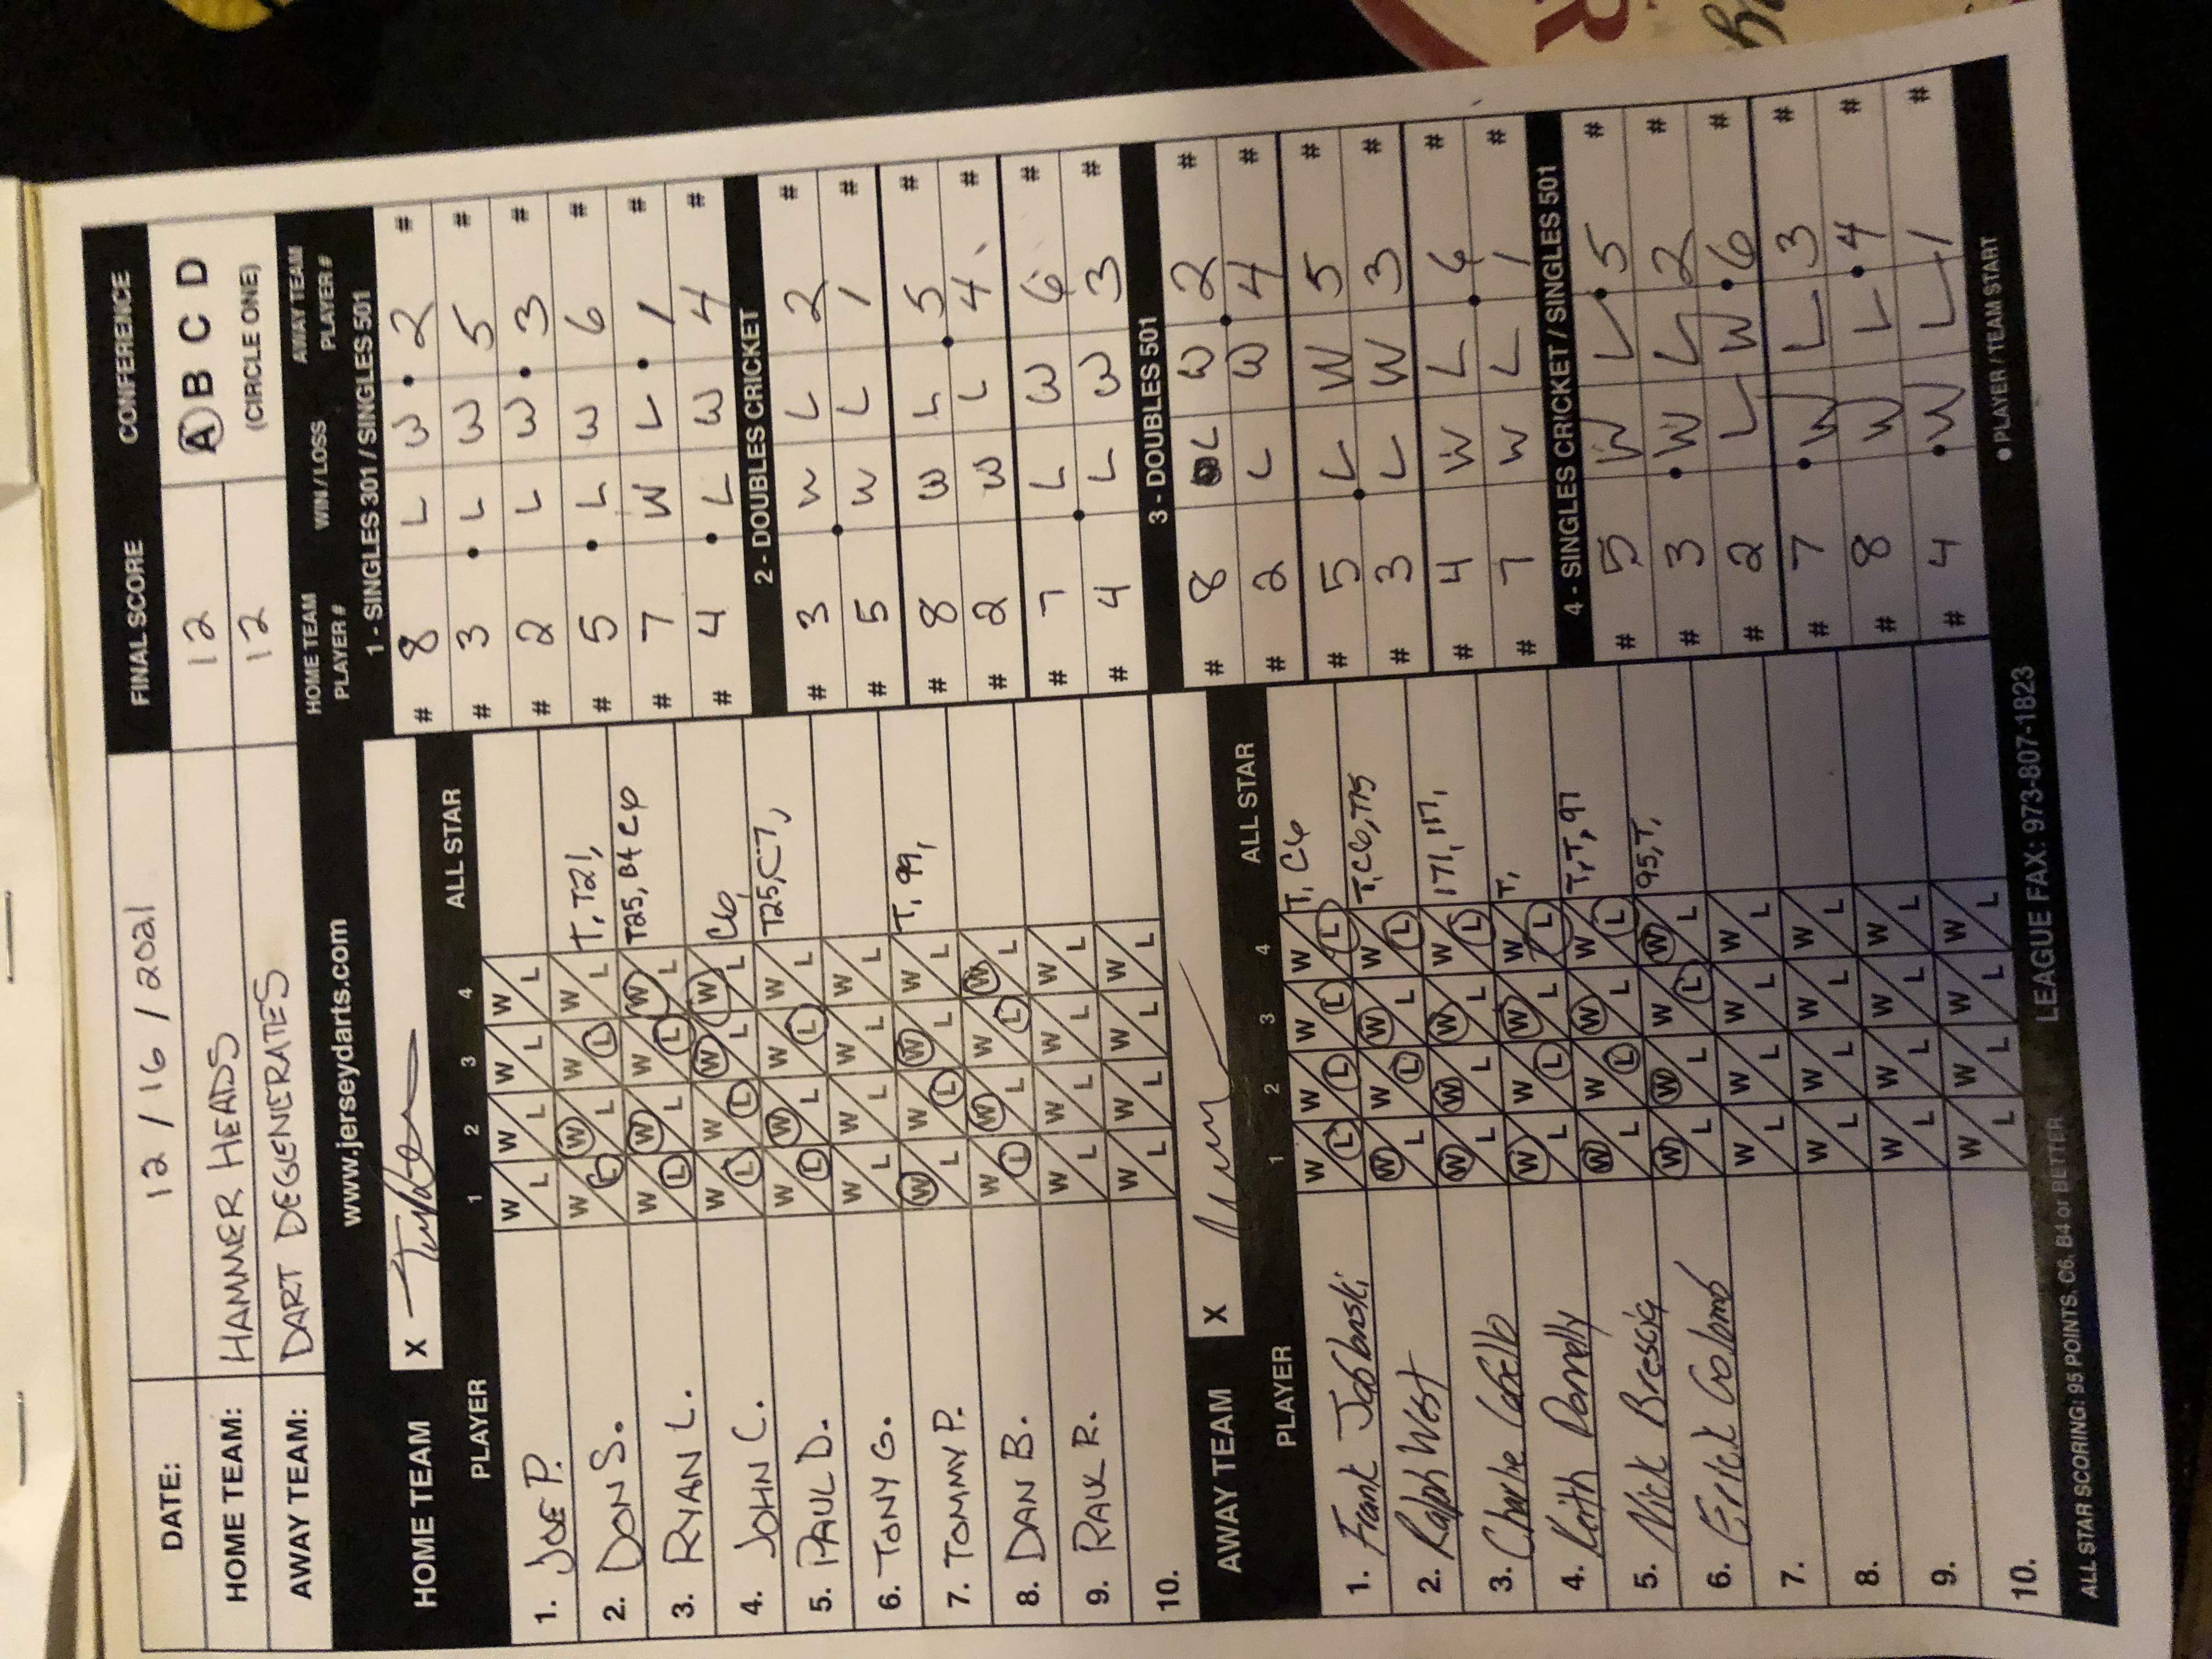 DATE: 12 / 16 / 2021 FINAL SCORE CONFERENCE
HOME TEAM: HAMMER HEADS 12 A B C D
AWAY TEAM: DART DEGENERATES 12 (CIRCLE ONE)
www.jerseydarts.com
HOME TEAM X
PLAYER 1 2 3 4 ALL STAR
1. JOE P. W L W L W L W L
2. DON S. W L W L W L W L T, T21,
3. RYAN L. W L W L W L W L T25, B4 C6
4. JOHN C. W L W L W L W L C6,
5. PAUL D. W L W L W L W L T25, C7,
6. TONY G. W L W L W L W L
7. TOMMY P. W L W L W L W L T, 99,
8. DAN B. W L W L W L W L
9. RAUL R. W L W L W L W L
10. W L W L W L W L
AWAY TEAM X
PLAYER 1 2 3 4 ALL STAR
1. Frank Jablonski W L W L W L W L T, C6
2. Ralph West W L W L W L W L T, C6, T15
3. Charlie Cabello W L W L W L W L 171, 117,
4. Keith Donnelly W L W L W L W L T,
5. Nick Bressig W L W L W L W L T, T, 97
6. Erick Golomb W L W L W L W L 95, T,
7. W L W L W L W L
8. W L W L W L W L
9. W L W L W L W L
10. W L W L W L W L
ALL STAR SCORING: 95 POINTS, C6, B4 or BETTER LEAGUE FAX: 973-807-1823
HOME TEAM PLAYER # WIN / LOSS AWAY TEAM PLAYER #
1 - SINGLES 301 / SINGLES 501
# 8 L W 2 #
# 3 L W 5 #
# 2 L W 3 #
# 5 L W 6 #
# 7 W L 1 #
# 4 L W 4 #
2 - DOUBLES CRICKET
# 3 W L 2 #
# 5 W L 1 #
# 8 W L 5 #
# 2 W L 4 #
# 7 L W 6 #
# 4 L W 3 #
3 - DOUBLES 501
# 8 L W 2 #
# 2 L W 4 #
# 5 L W 5 #
# 3 L W 3 #
# 4 W L 6 #
# 7 W L 1 #
4 - SINGLES CRICKET / SINGLES 501
# 5 W L 5 #
# 3 W L 2 #
# 2 L W 6 #
# 7 W L 3 #
# 8 W L 4 #
# 4 W L 1 #
● PLAYER / TEAM START